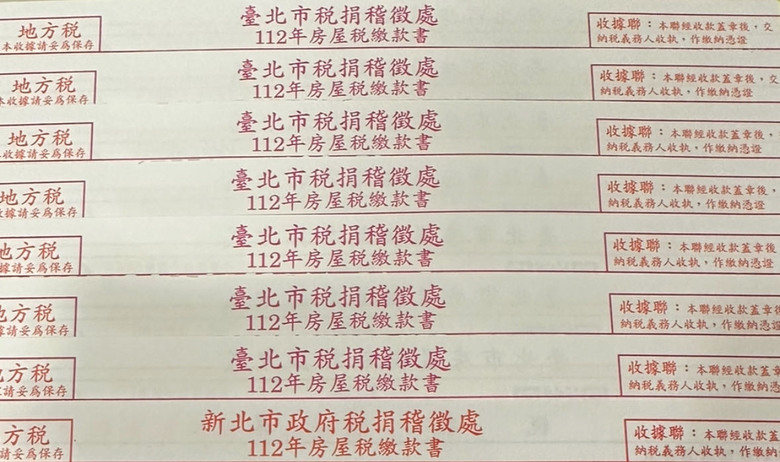 地方税
本收據請妥為保存
臺北市税捐稽徵處
112年房屋税繳款書
收據聯：本聯經收款蓋章後，交
納税義務人收執，作繳納憑證
地方税
本收據請妥為保存
臺北市税捐稽徵處
112年房屋税繳款書
收據聯：本聯經收款蓋章後，交
納税義務人收執，作繳納憑證
地方税
收據請妥為保存
臺北市税捐稽徵處
112年房屋税繳款書
收據聯：本聯經收款蓋章後，
納税義務人收執，作繳納憑證
地方税
收據請妥為保存
臺北市税捐稽徵處
112年房屋税繳款書
收據聯：本聯經收款蓋章後，
納税義務人收執，作繳納憑證
地方税
據請妥為保存
臺北市税捐稽徵處
112年房屋税繳款書
收據聯：本聯經收款蓋章後
納税義務人收執，作繳納憑證
方税
據請妥為保存
臺北市税捐稽徵處
112年房屋税繳款書
收據聯：本聯經收款蓋章後
納税義務人收執，作繳納憑證
方税
據請妥為保存
臺北市税捐稽徵處
112年房屋税繳款書
收據聯：本聯經收款蓋章
納税義務人收執，作繳納憑
方税
請妥為保存
新北市政府税捐稽徵處
112年房屋税繳款書
收據聯：本聯經收款蓋
納税義務人收執，作繳納